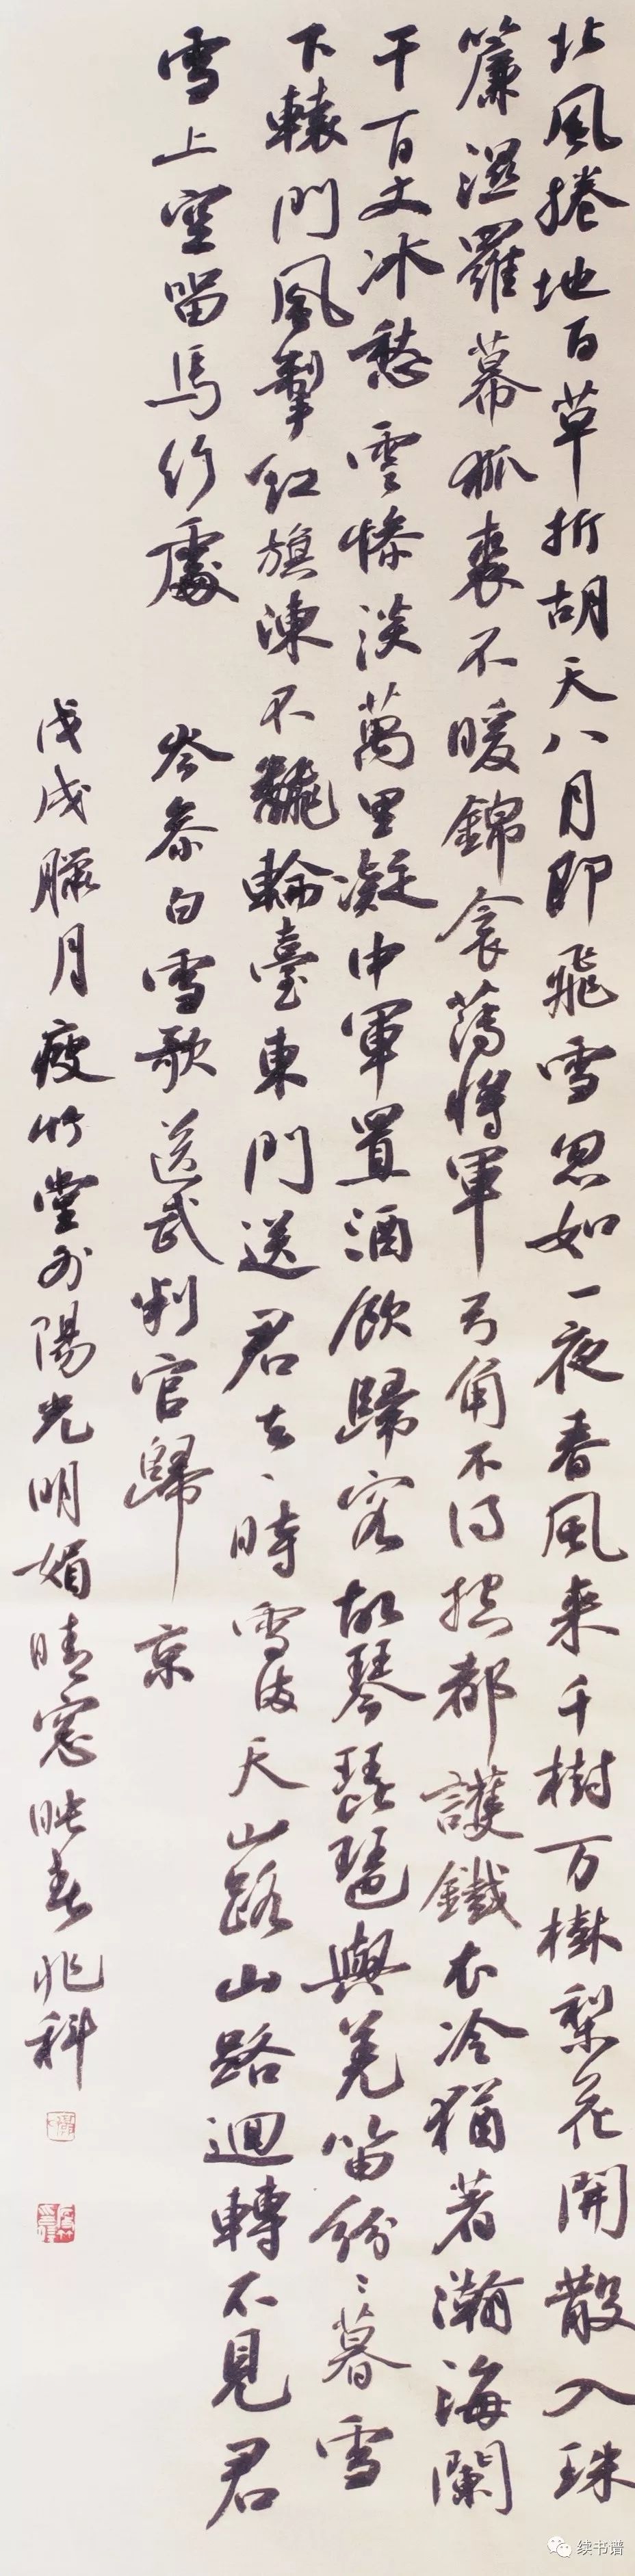 北風捲地百草折胡天八月即飛雪忽如一夜春風来千樹万樹梨花開散入珠
簾濕羅幕狐裘不暖錦衾薄將軍弓角不得控都護鐵衣冷猶著瀚海闌
干百丈冰愁雲惨淡萬里凝中軍置酒飲歸客胡琴琵琶與羌笛紛〻暮雪
下轅門風掣紅旗凍不翻輪臺東門送君去〻時雪滿天山路山路迴轉不見君
雪上空留馬行處 岑參白雪歌送武判官歸京
戊戌臘月瘦竹堂外陽光明媚晴窓映春兆科
续书谱